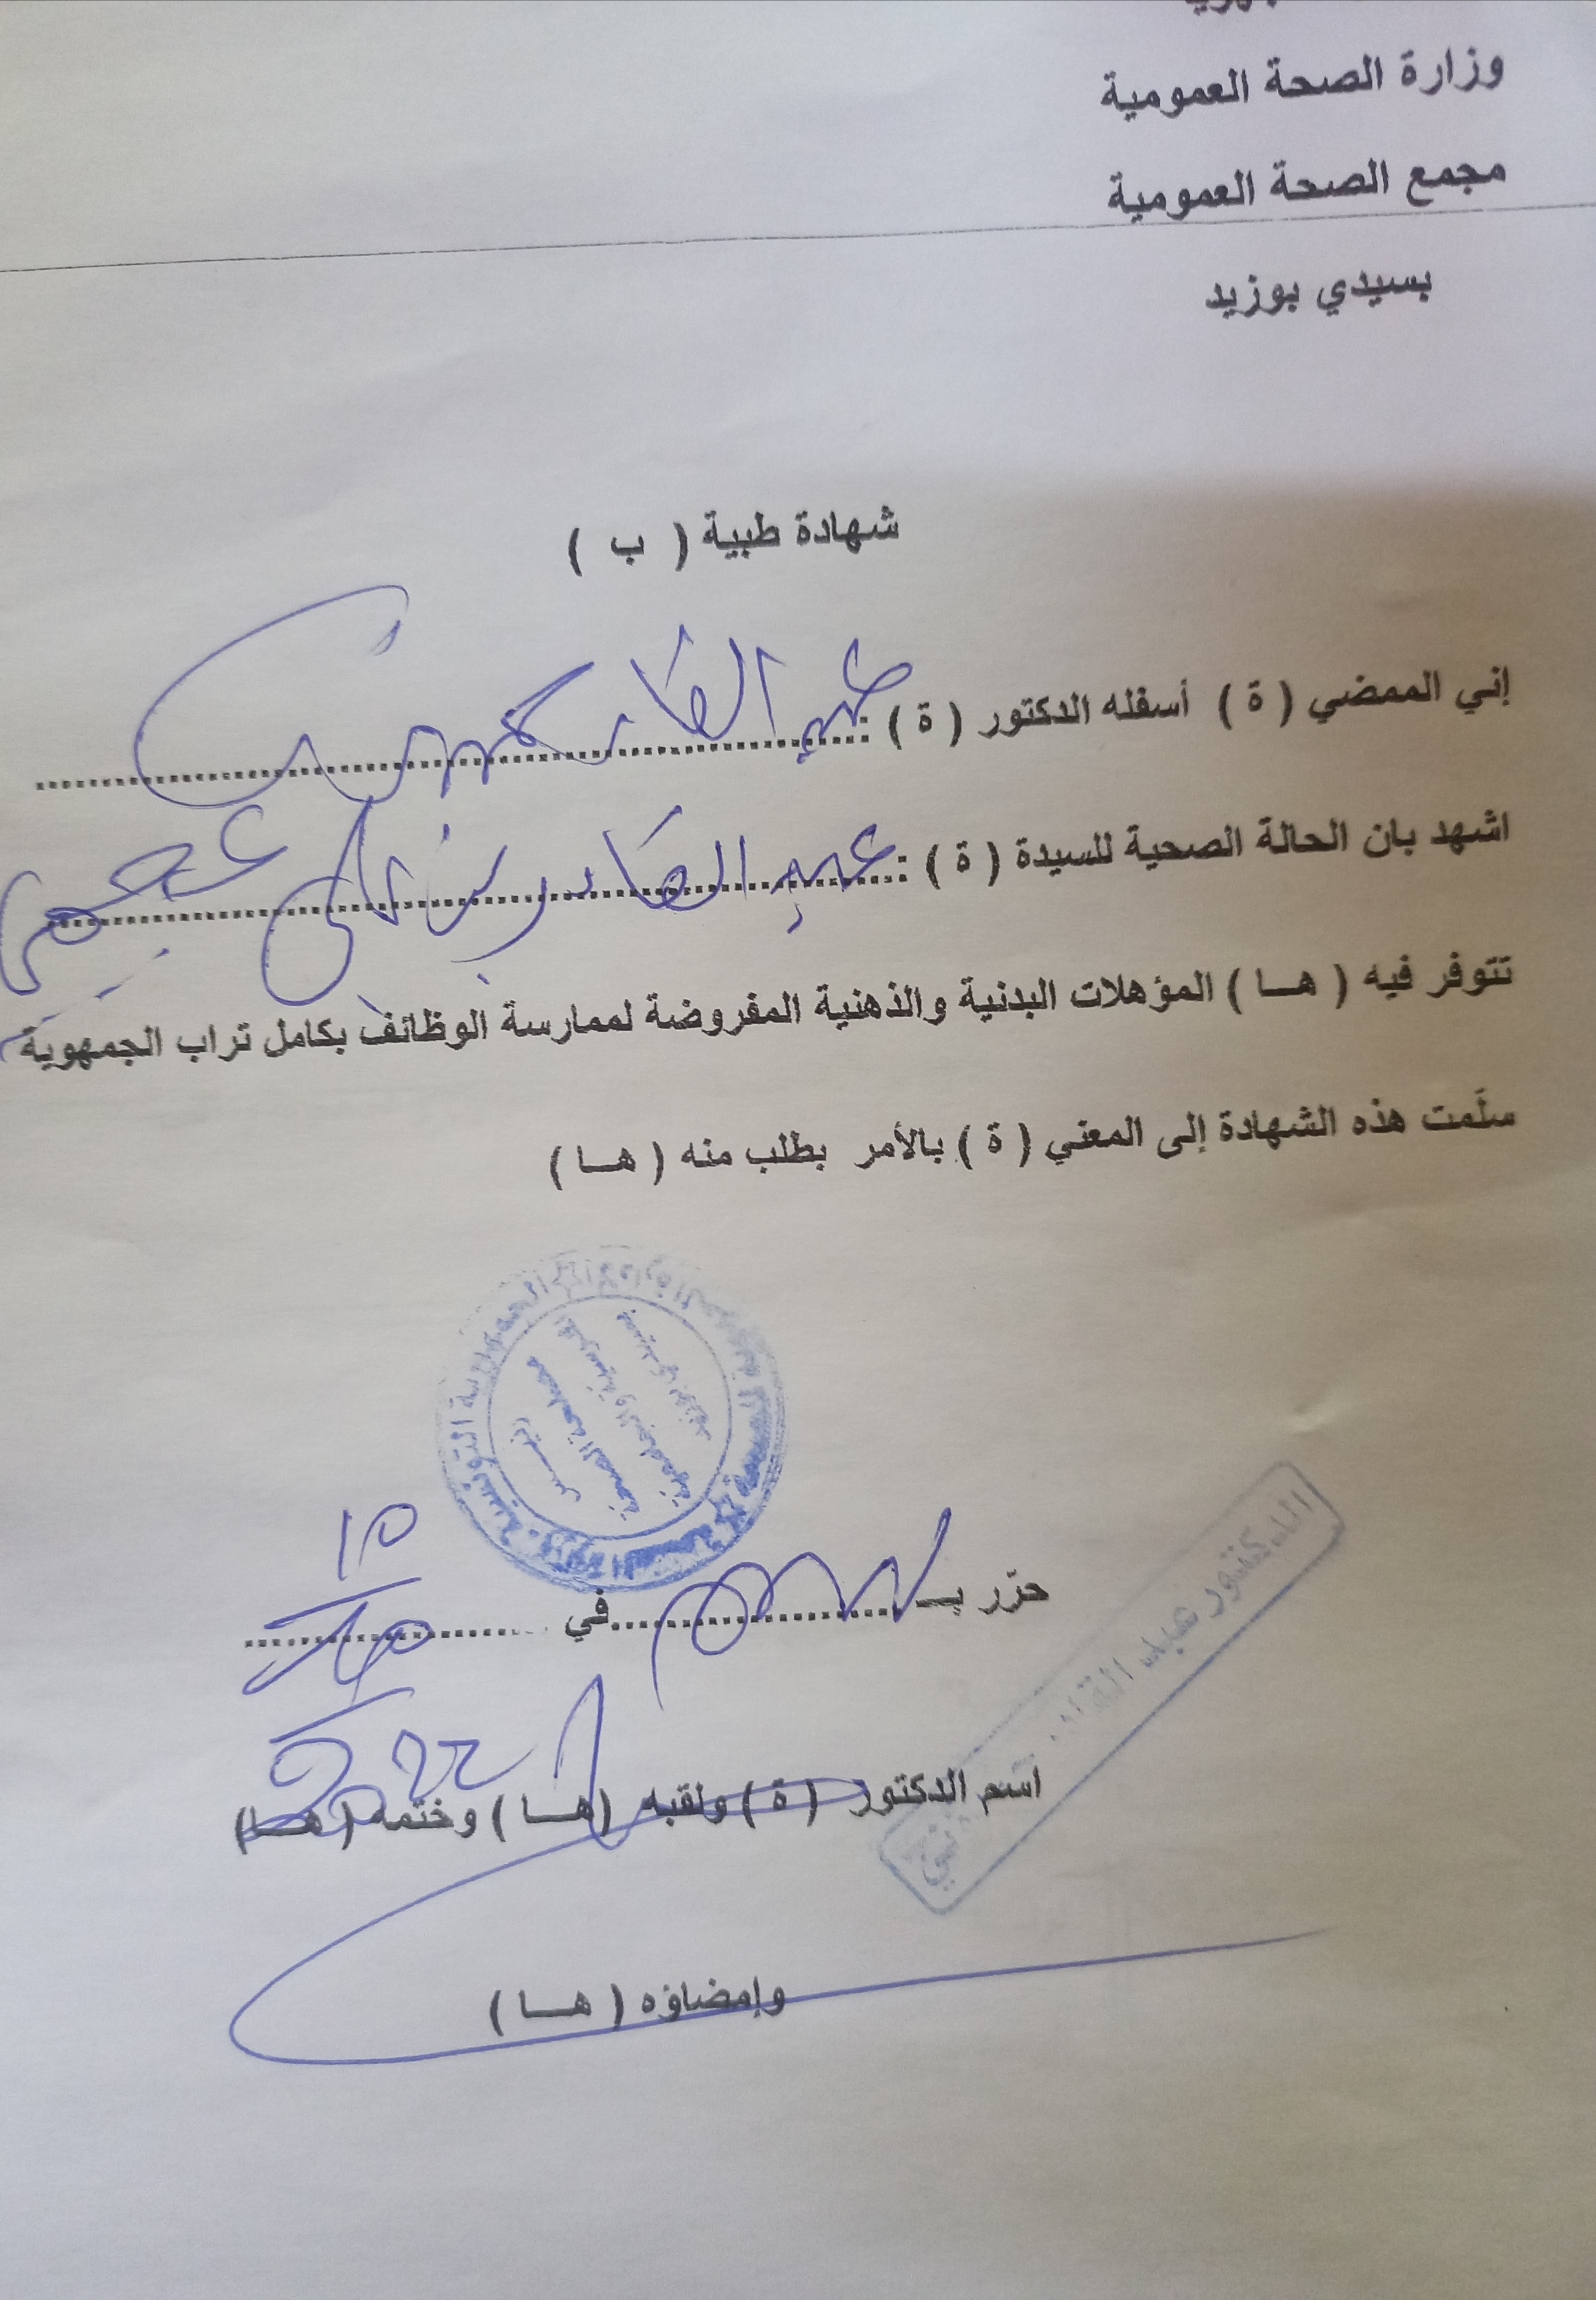 وزارة الصحة العمومية
مجمع الصحة العمومية
بسيدي بوزيد
شهادة طبية ( ب )
إني الممضي ( ة ) أسفله الدكتور ( ة ) : عبد القادر
اشهد بان الحالة الصحية للسيدة ( ة ) : عبد القادر بن علي
تتوفر فيه ( هـا ) المؤهلات البدنية والذهنية المفروضة لممارسة الوظائف بكامل تراب الجمهوية
سلّمت هذه الشهادة إلى المعني ( ة ) بالأمر بطلب منه ( هـا )
حرّر بـ في
اسم الدكتور ( ة ) ولقبه ( هـا ) وختمه ( هـا )
الدكتور عبد
وإمضاؤه ( هـا )